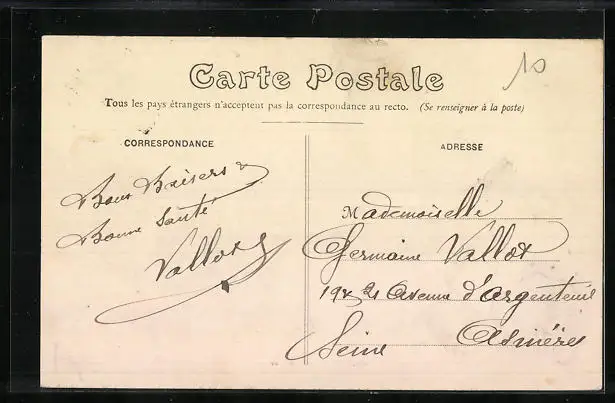 10
Carte Postale
Tous les pays étrangers n'acceptent pas la correspondance au recto. (Se renseigner à la poste)
CORRESPONDANCE
Bons Baisers &
Bonne Santé
Vallox
ADRESSE
Mademoiselle
Germaine Vallox
19 21 Avenue d'argenteuil
Asnières
Seine